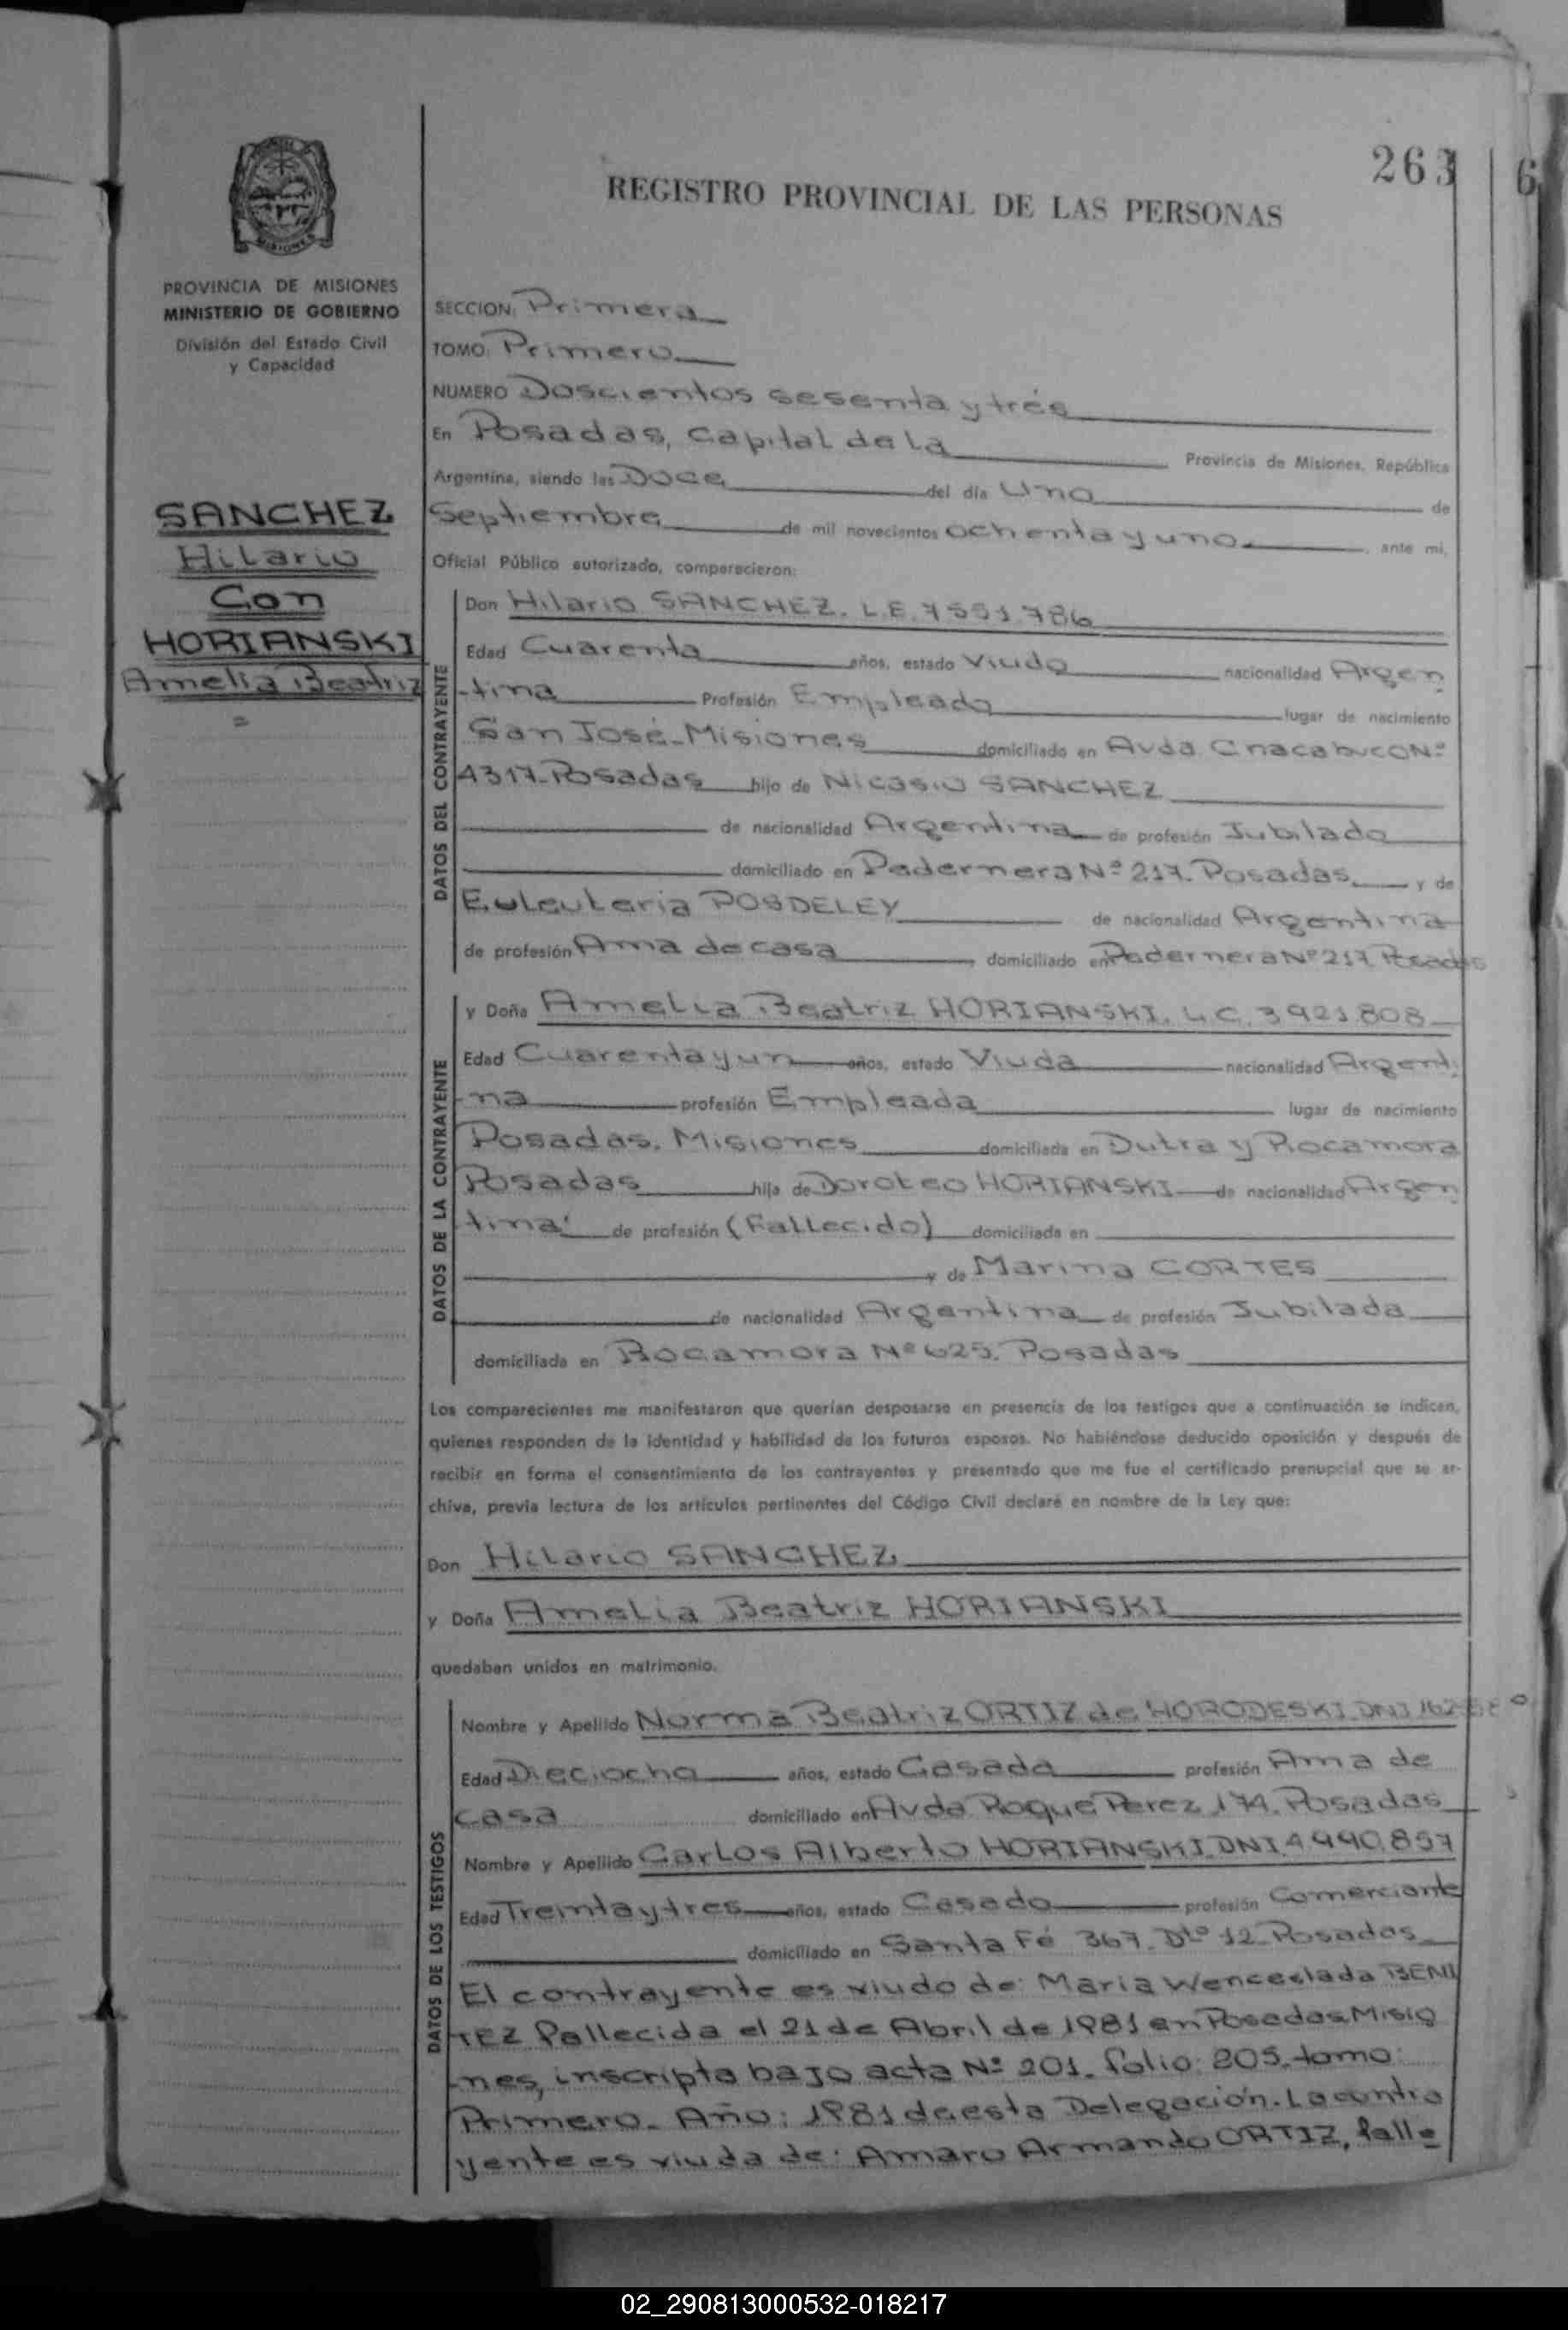 263
6
REGISTRO PROVINCIAL DE LAS PERSONAS
MISIONES
PROVINCIA DE MISIONES
MINISTERIO DE GOBIERNO
División del Estado Civil
y Capacidad
SANCHEZ
Hilario
Con
HORIANSKI
Amelia Beatriz
=
SECCION: Primera
TOMO: Primero
NUMERO Doscientos sesenta y trés
En Posadas, Capital de la Provincia de Misiones, República
Argentina, siendo las Doce del día Uno de
Septiembre de mil novecientos ochenta y uno. , ante mi,
Oficial Público autorizado, comparecieron:
DATOS DEL CONTRAYENTE
Don Hilario SANCHEZ. L.E. 7551.786
Edad Cuarenta años, estado Viudo nacionalidad Argen
-tina Profesión Empleado lugar de nacimiento
San José-Misiones domiciliado en Avda. Chacabuco Nº
4317-Posadas hijo de Nicasio SANCHEZ
de nacionalidad Argentina de profesión Jubilado
domiciliado en Pedernera Nº 217. Posadas y de
POSDELEY de nacionalidad Argentina
de profesión Ama de casa domiciliado en Pedernera Nº 217 Posadas
DATOS DE LA CONTRAYENTE
y Doña Amelia Beatriz HORIANSKI. L.C. 3921.808
Edad Cuarenta y un años, estado Viuda nacionalidad Argenti
-na profesión Empleada lugar de nacimiento
Posadas. Misiones domiciliada en Dutra y Rocamora
Posadas hija de Doroteo HORIANSKI de nacionalidad Argen
tina de profesión (Fallecido) domiciliada en
y de Marina CORTES
de nacionalidad Argentina de profesión Jubilada
domiciliada en Rocamora Nº 625. Posadas
Los comparecientes me manifestaron que querían desposarse en presencia de los testigos que a continuación se indican,
quienes responden de la identidad y habilidad de los futuros esposos. No habiéndose deducido oposición y después de
recibir en forma el consentimiento de los contrayentes y presentado que me fue el certificado prenupcial que se ar-
chiva, previa lectura de los artículos pertinentes del Código Civil declaré en nombre de la Ley que:
Don Hilario SANCHEZ
y Doña Amelia Beatriz HORIANSKI
quedaban unidos en matrimonio.
DATOS DE LOS TESTIGOS
Nombre y Apellido Norma Beatriz ORTIZ de HORODESKI. DNI
Edad Dieciocho años, estado Casada profesión Ama de
casa domiciliado en Avda Roque Perez 174. Posadas
Nombre y Apellido Carlos Alberto HORIANSKI. DNI. 4990.857
Edad Treinta y tres años, estado Casado profesión Comerciante
domiciliado en Santa Fé 367. Dto 12. Posadas
El contrayente es viudo de: Maria Wenceslada BENI
TEZ fallecida el 21 de Abril de 1981 en Posadas Misio
-nes, inscripta bajo acta Nº 201. folio: 205. tomo:
Primero. Año: 1981 de esta Delegación. La contra
yente es viuda de: Amaro Armando ORTIZ, falle
02_290813000532-018217